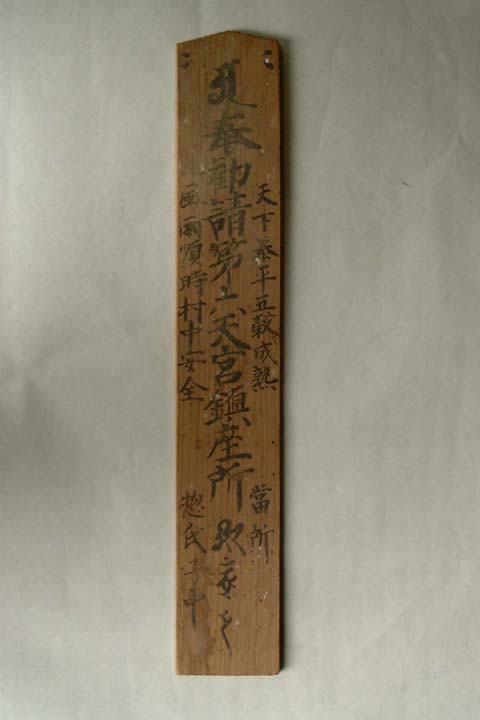 奉勧請第六天宮鎮座所
天下泰平五穀成熟
當所
風雨順時村中安全
惣氏子中